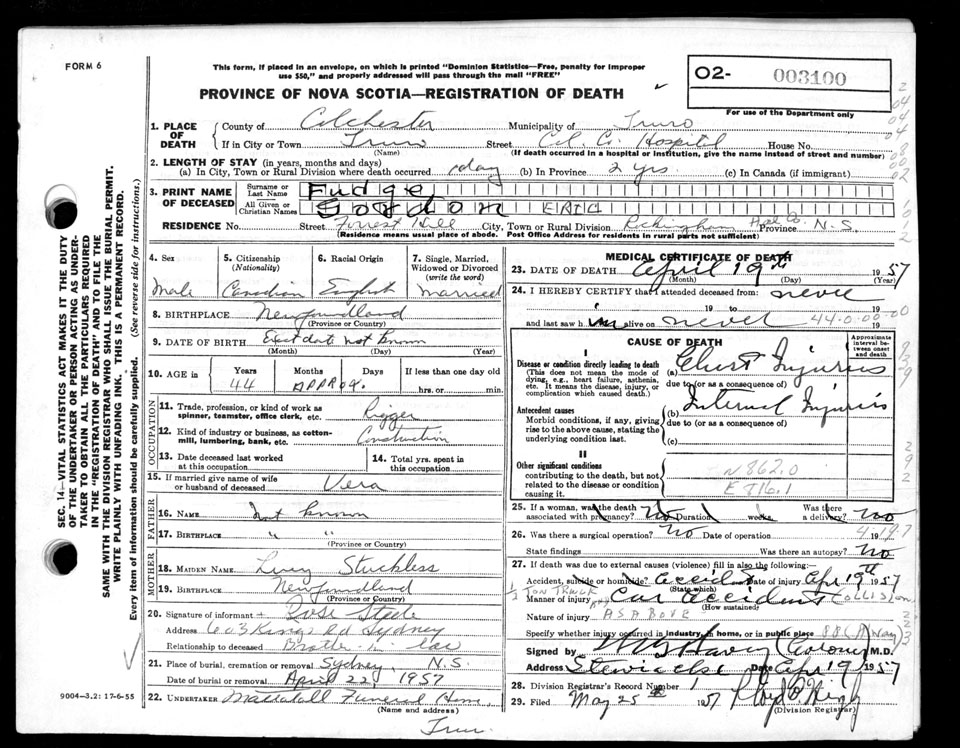 FORM 6
This form, if placed in an envelope, on which is printed "Dominion Statistics—Free, penalty for improper
use $50," and properly addressed will pass through the mail "FREE"
PROVINCE OF NOVA SCOTIA—REGISTRATION OF DEATH
O2- 003100
For use of the Department only
1. PLACE OF DEATH County of Colchester Municipality of Truro
If in City or Town Truro Street Col. Co. Hospital House No.
(Name) (If death occurred in a hospital or institution, give the name instead of street and number)
2. LENGTH OF STAY (in years, months and days)
(a) In City, Town or Rural Division where death occurred 1 day (b) In Province 2 yrs. (c) In Canada (if immigrant)
3. PRINT NAME OF DECEASED Surname or Last Name Fudge
All Given or Christian Names Gordon ERIC
RESIDENCE No. Street Forrest Hill City, Town or Rural Division Rockingham Hfx Co. Province N.S.
(Residence means usual place of abode. Post Office Address for residents in rural parts not sufficient)
4. Sex 5. Citizenship (Nationality) 6. Racial Origin 7. Single, Married, Widowed or Divorced (write the word)
Male Canadian English married
8. BIRTHPLACE Newfoundland
(Province or Country)
9. DATE OF BIRTH Exact date not known
(Month) (Day) (Year)
10. AGE in Years Months Days If less than one day old
44 APPROX. hrs. or min.
OCCUPATION
11. Trade, profession, or kind of work as spinner, teamster, office clerk, etc. Rigger
12. Kind of industry or business, as cotton-mill, lumbering, bank, etc. Construction
13. Date deceased last worked at this occupation 14. Total yrs. spent in this occupation
15. If married give name of wife or husband of deceased Vera
FATHER
16. NAME Not known
17. BIRTHPLACE " "
(Province or Country)
MOTHER
18. MAIDEN NAME Lucy Stuckless
19. BIRTHPLACE Newfoundland
(Province or Country)
20. Signature of informant Rose Steele
Address 603 Kings Rd Sydney
Relationship to deceased Brother-in law
21. Place of burial, cremation or removal Sydney, N.S.
Date of burial or removal April 22, 1957
22. UNDERTAKER Mattatall Funeral Home
(Name and address)
Truro
MEDICAL CERTIFICATE OF DEATH
23. DATE OF DEATH April 19th 1957
(Month) (Day) (Year)
24. I HEREBY CERTIFY that I attended deceased from: never
19 to 19
and last saw him alive on never 19
44-0-00-00
CAUSE OF DEATH
Approximate interval between onset and death
I
Disease or condition directly leading to death
(This does not mean the mode of dying, e.g., heart failure, asthenia, etc. It means the disease, injury, or complication which caused death.)
(a) Chest Injuries
due to (or as a consequence of)
Antecedent causes
Morbid conditions, if any, giving rise to the above cause, stating the underlying condition last.
(b) Internal Injuries
due to (or as a consequence of)
(c)
II
Other significant conditions
contributing to the death, but not related to the disease or condition causing it.
N 862.0
E 816.1
25. If a woman, was the death associated with pregnancy? No Duration weeks Was there a delivery? no
26. Was there a surgical operation? no Date of operation 19
State findings Was there an autopsy? No
27. If death was due to external causes (violence) fill in also the following:
Accident, suicide or homicide? accident Date of injury Apr 19th 1957
(State which)
Manner of injury Car accident COLLISION
(How sustained)
Nature of injury AS ABOVE
Specify whether injury occurred in industry, in home, or in public place
Signed by M.D.
Address Stewiacke Date Apr 19 1957
28. Division Registrar's Record Number 1
29. Filed May 25th 1957
(Division Registrar)
SEC. 14—VITAL STATISTICS ACT MAKES IT THE DUTY
OF THE UNDERTAKER OR PERSON ACTING AS UNDER-
TAKER TO OBTAIN ALL THE PARTICULARS REQUIRED
IN THE "REGISTRATION OF DEATH" AND TO FILE THE
SAME WITH THE DIVISION REGISTRAR WHO SHALL ISSUE THE BURIAL PERMIT.
WRITE PLAINLY WITH UNFADING INK. THIS IS A PERMANENT RECORD.
Every item of information should be carefully supplied. (See reverse side for instructions.)
9004—3.2: 17-6-55